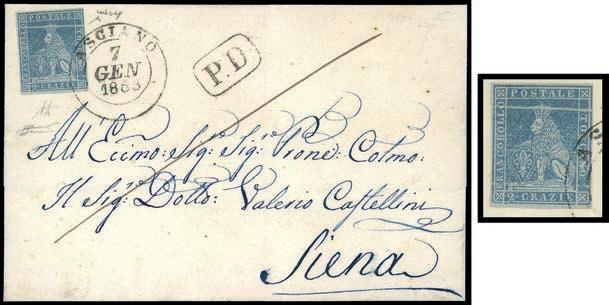 FRANCOBOLLO POSTALE TOSCANO
2 CRAZIE
ASCIANO
7
GEN
1853
P.D
All' Eccmo: Sig: Sig:re Prone: Colmo:
Il Sig: Dott: Valerio Castellini
Siena
FRANCOBOLLO POSTALE TOSCANO
2 CRAZIE